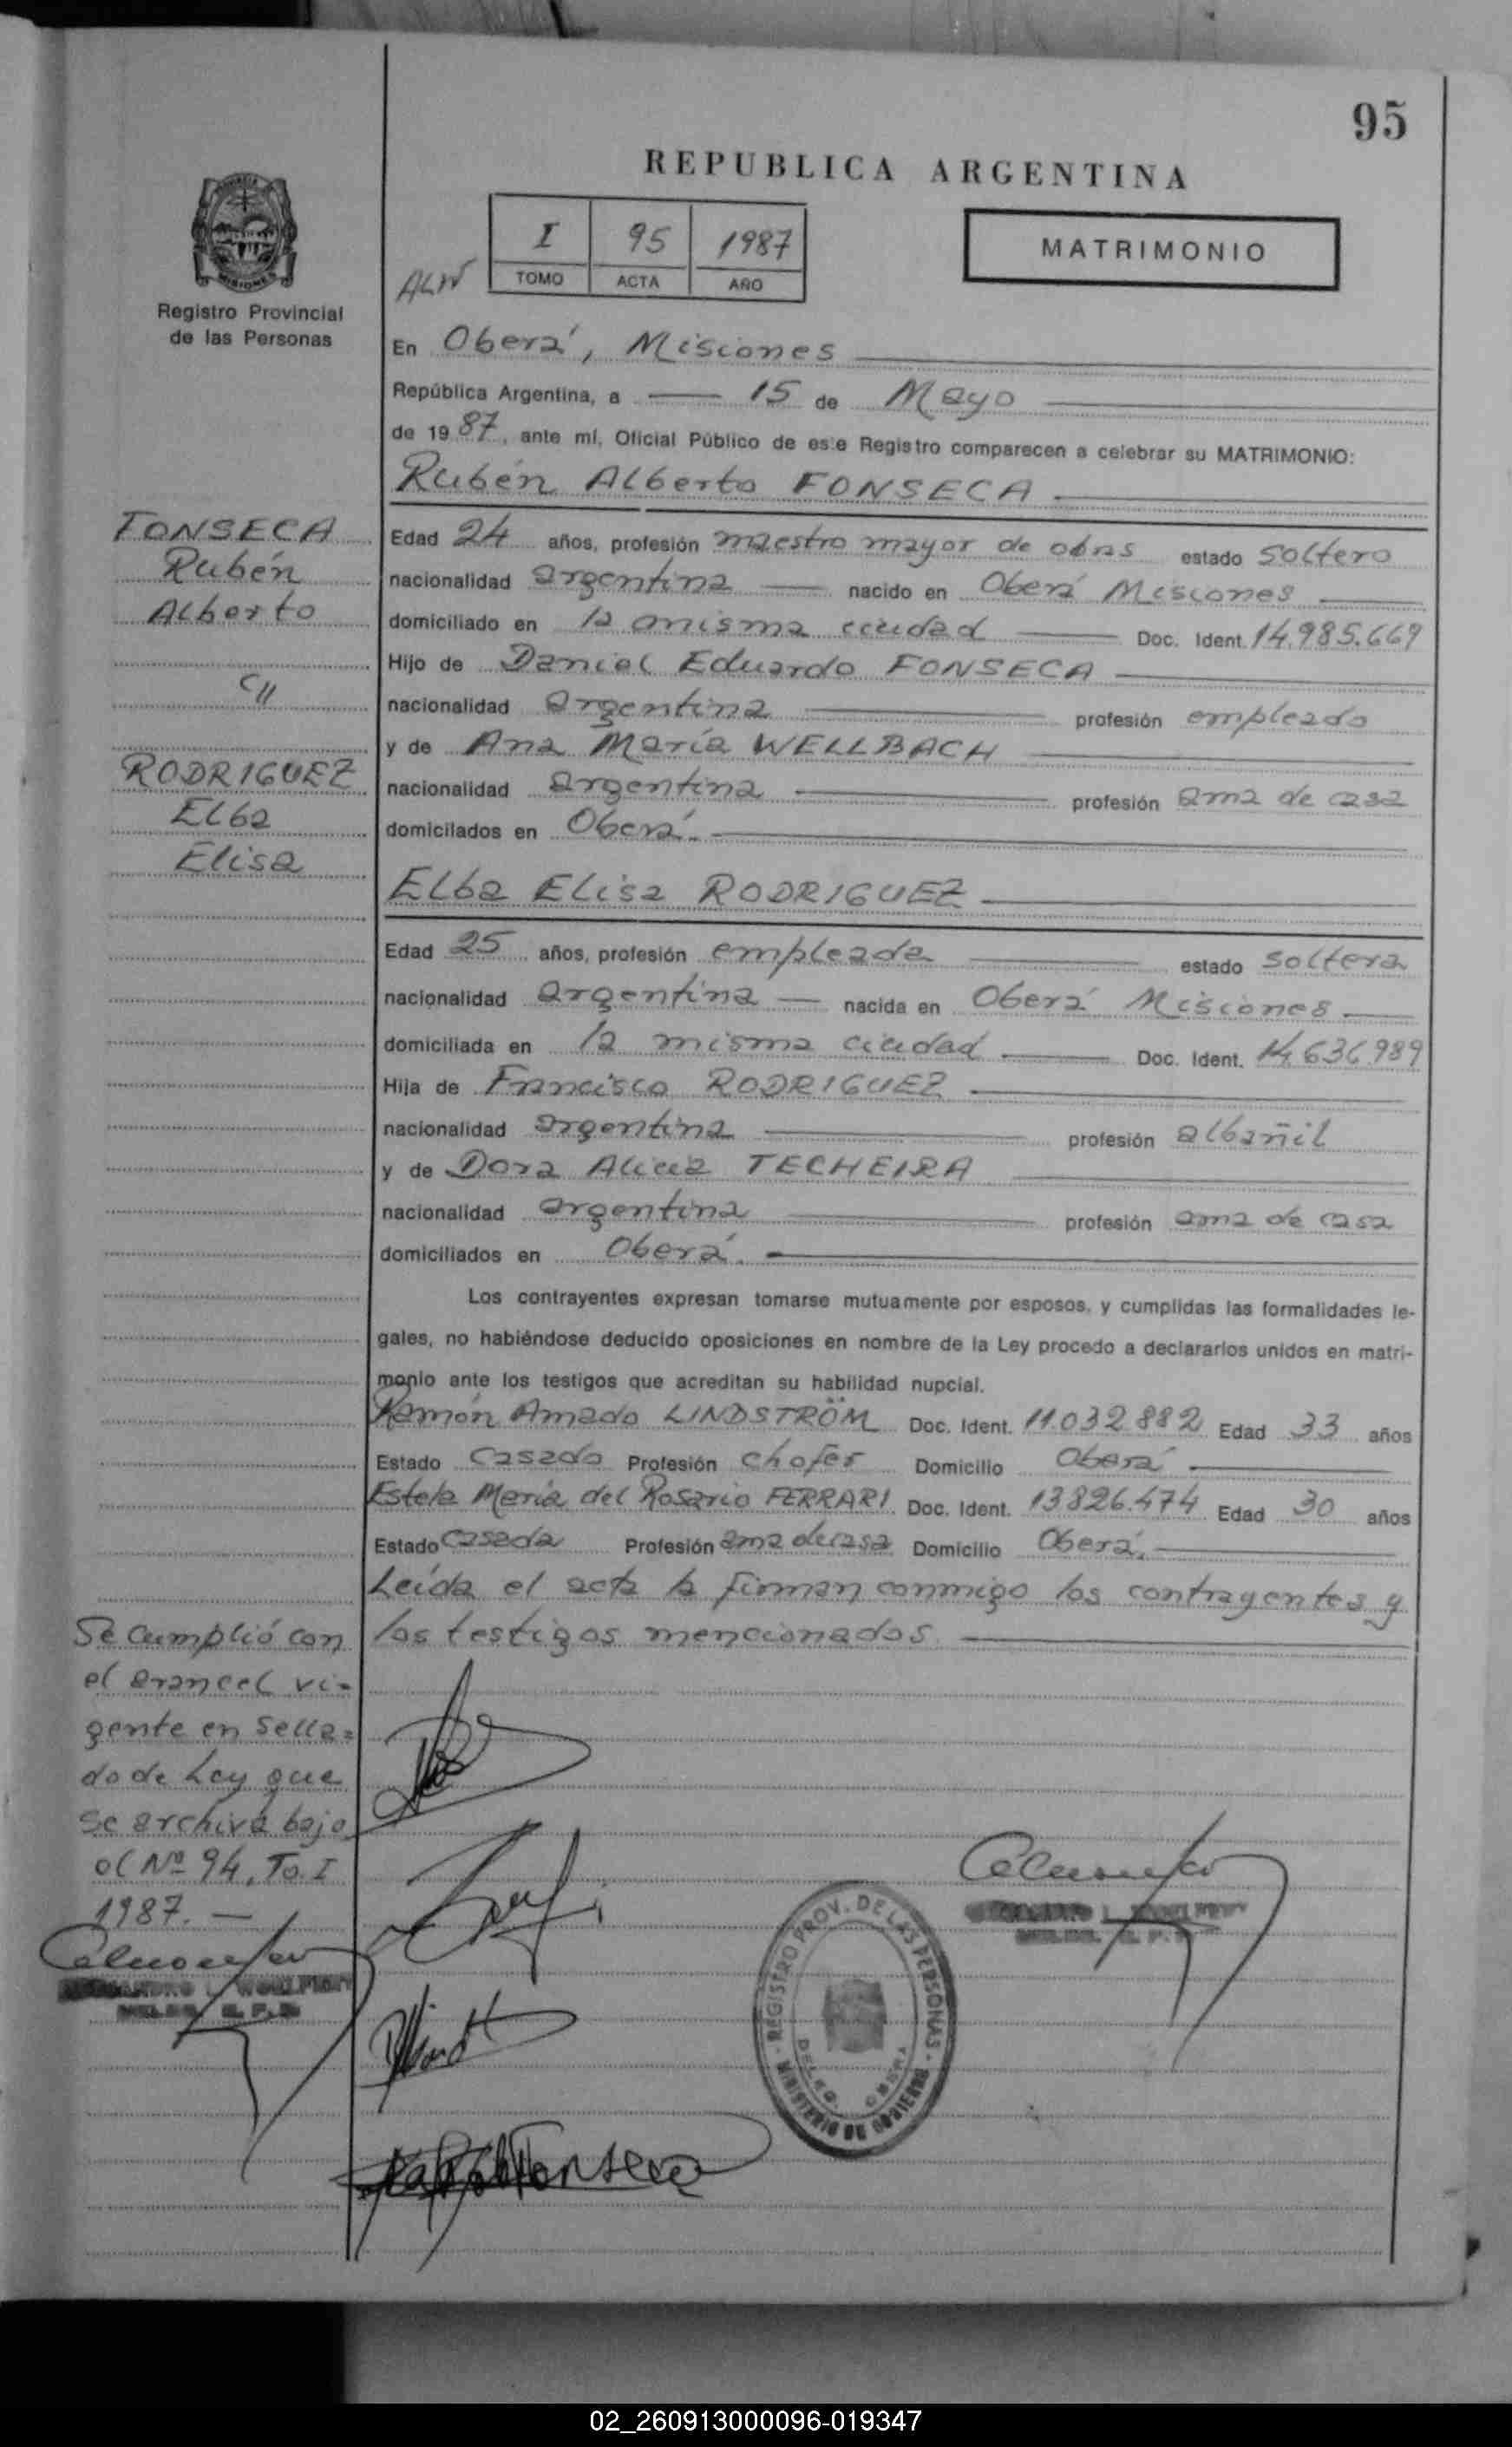 95
REPUBLICA ARGENTINA
I 95 1987
TOMO ACTA AÑO
MATRIMONIO
Registro Provincial
de las Personas
En Oberá, Misiones
República Argentina, a 15 de Mayo
de 1987, ante mí, Oficial Público de este Registro comparecen a celebrar su MATRIMONIO:
Rubén Alberto FONSECA
FONSECA
Rubén
Alberto
c//
RODRIGUEZ
Elba
Elisa
Edad 24 años, profesión maestro mayor de obras estado soltero
nacionalidad argentina nacido en Oberá Misiones
domiciliado en la misma ciudad Doc. Ident. 14.985.669
Hijo de Daniel Eduardo FONSECA
nacionalidad argentina profesión empleado
y de Ana María WELLBACH
nacionalidad argentina profesión ama de casa
domicilados en Oberá.
Elba Elisa RODRIGUEZ
Edad 25 años, profesión empleada estado soltera
nacionalidad argentina nacida en Oberá Misiones
domiciliada en la misma ciudad Doc. Ident. 14.636.989
Hija de Francisco RODRIGUEZ
nacionalidad argentina profesión albañil
y de Dora Alicia TECHEIRA
nacionalidad argentina profesión ama de casa
domiciliados en Oberá.
Los contrayentes expresan tomarse mutuamente por esposos, y cumplidas las formalidades le-
gales, no habiéndose deducido oposiciones en nombre de la Ley procedo a declararlos unidos en matri-
monio ante los testigos que acreditan su habilidad nupcial.
Ramón Amado LINDSTRÖM Doc. Ident. 11.032.882 Edad 33 años
Estado casado Profesión chofer Domicilio Oberá
Estela María del Rosario FERRARI Doc. Ident. 13.826.474 Edad 30 años
Estado casada Profesión ama de casa Domicilio Oberá.
Leída el acta la firman conmigo los contrayentes y
los testigos mencionados.
Se cumplió con
el arancel vi-
gente en sella=
do de Ley que
se archiva bajo
el Nº 94, To. I
1987.-
REGISTRO PROV. DE LAS PERSONAS
MINISTERIO DE GOBIERNO
DELEG. OBERA
02_260913000096-019347